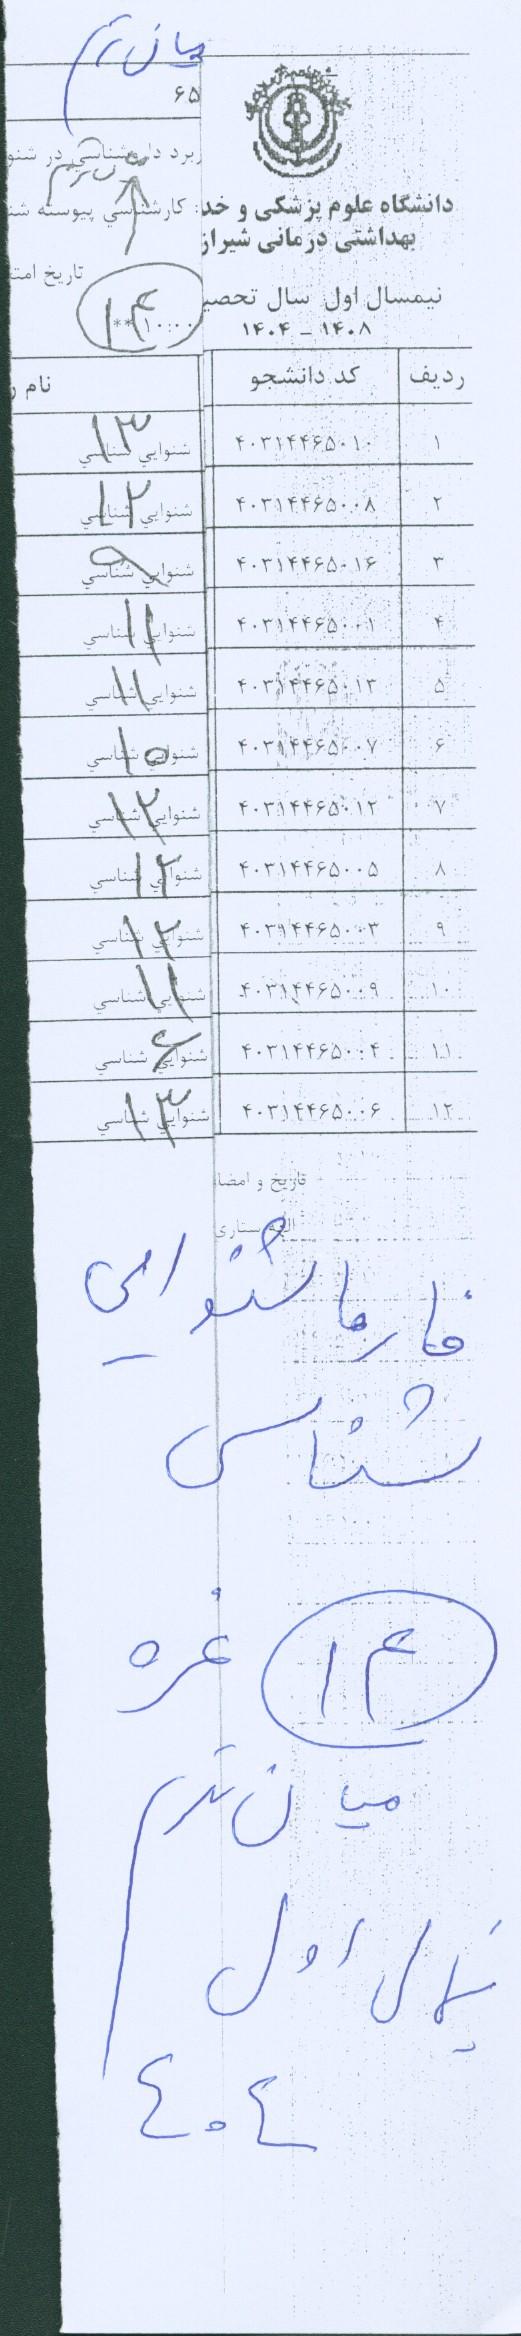 میان ترم
۶۵
دانشگاه علوم پزشکی و خد
بهداشتی درمانی شیراز
ربرد داروشناسي در شنو
میان ترم
: کارشناسي پیوسته شنو
تاریخ امتـ
نیمسال اول سال تحصیـ
۱۴۰۴ - ۱۴۰۸
۱۰:۰۰ **
۱۴
ردیف کد دانشجو نام و
۱ ۴۰۳۱۴۴۶۵۰۱۰ شنوايي شناسي ۱۳
۲ ۴۰۳۱۴۴۶۵۰۰۸ شنوايي شناسي ۱۲
۳ ۴۰۳۱۴۴۶۵۰۱۶ شنوايي شناسي ۹
۴ ۴۰۳۱۴۴۶۵۰۰۱ شنوايي شناسي ۱۱
۵ ۴۰۳۱۴۴۶۵۰۱۳ شنوايي شناسي ۱۱
۶ ۴۰۳۱۴۴۶۵۰۰۷ شنوايي شناسي ۱۰
۷ ۴۰۳۱۴۴۶۵۰۱۲ شنوايي شناسي ۱۲
۸ ۴۰۳۱۴۴۶۵۰۰۵ شنوايي شناسي ۱۲
۹ ۴۰۳۱۴۴۶۵۰۰۳ شنوايي شناسي ۱۲
۱۰ ۴۰۳۱۴۴۶۵۰۰۹ شنوايي شناسي ۱۱
۱۱ ۴۰۳۱۴۴۶۵۰۰۴ شنوايي شناسي ۶
۱۲ ۴۰۳۱۴۴۶۵۰۰۶ شنوايي شناسي ۱۳
تاریخ و امضا
فارما شنوایی
شناسی
۱۴ نمره
میان ترم
نیمسال اول
٤٠٤